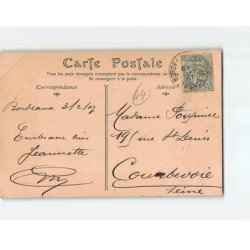 Carte Postale
Tous les pays étrangers n'acceptent pas la correspondance au
Se renseigner à la poste.
Correspondance
Adresse
64
Bordeaux 31/2/07
Embrasse bien
Jeannette
Madame
195 rue St Denis
Courbevoie
Seine